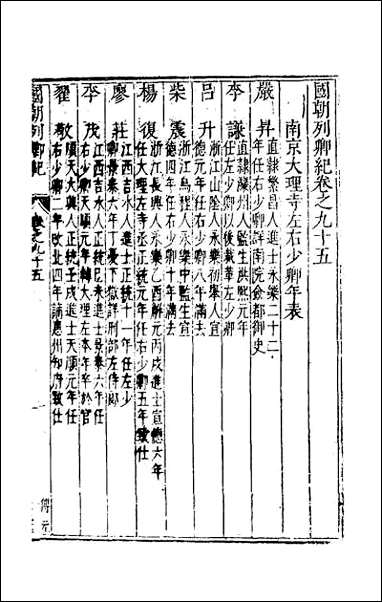 國朝列卿紀卷之九十五
南京大理寺左右少卿年表
嚴昇
直隸繁昌人進士永樂二十二
年任右少卿詳南院僉都御史
李謙
直隸灤州人監生洪熙元年
任左少卿以後裁革左少卿
呂升
浙江山陰人永樂初舉人宣
德元年任右少卿八年滿去
柴震
浙江烏程人永樂中監生宣
德四年任右少卿十年滿去
楊復
浙江長興人永樂乙酉解元丙戌進士宣德六年
任大理左寺丞正統元年任右少卿五年致仕
廖莊
江西吉水人進士正統十一年任左少
卿景泰六年丁憂詳刑部左侍郎
李茂
江西吉水人正統己未進士景泰六年任
右少卿天順元年轉大理左本年卒於官
翟敬
順天大興人正統壬戌進士天順元年任
右少卿二年改北四年謫惠州知府致仕
國朝列卿紀
卷之九十五